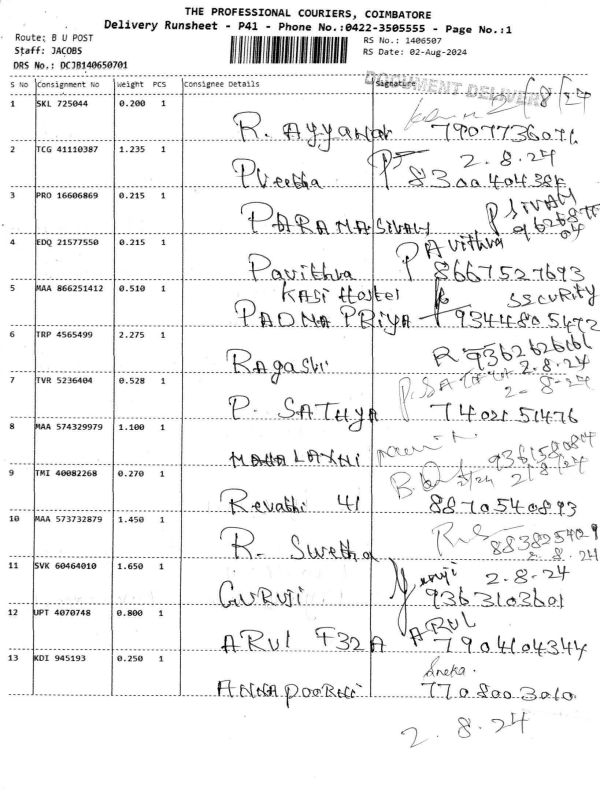 THE PROFESSIONAL COURIERS, COIMBATORE
Delivery Runsheet - P41 - Phone No.:0422-3505555 - Page No.:1
Route: B U POST
RS No.: 1406507
Staff: JACOBS
RS Date: 02-Aug-2024
DRS No.: DCJB140650701
DOCUMENT DELIVERY
S No Consignment No Weight PCS Consignee Details Signature
1 SKL 725044 0.200 1
R. Ayyanar
2 TCG 41110387 1.235 1 2.8.24
Pveetha
3 PRO 16606869 0.215 1 P SIVAM
PARAMASIVAM
4 EDQ 21577550 0.215 1 PAvithra
Pavithra 8667527693
5 MAA 866251412 0.510 1 KASI Hostel
PADMA PRIYA 9344805472
6 TRP 4565499 2.275 1
Ragashi 2.8.24
7 TVR 5236404 0.528 1 2-8-24
P. SATHYA 7402151476
8 MAA 574329979 1.100 1
MAHALAXMI 2/8/24
9 TMI 40082268 0.270 1
Revathi 41 8870540893
10 MAA 573732879 1.450 1
R. Swetha 2.8.24
11 SVK 60464010 1.650 1 2.8.24
GURUJI 9363103601
12 UPT 4070748 0.800 1 ARUL
ARUl F32A 7904104344
13 KDI 945193 0.250 1 Sneka.
ANNAPOORNI 7708003010
2.8.24